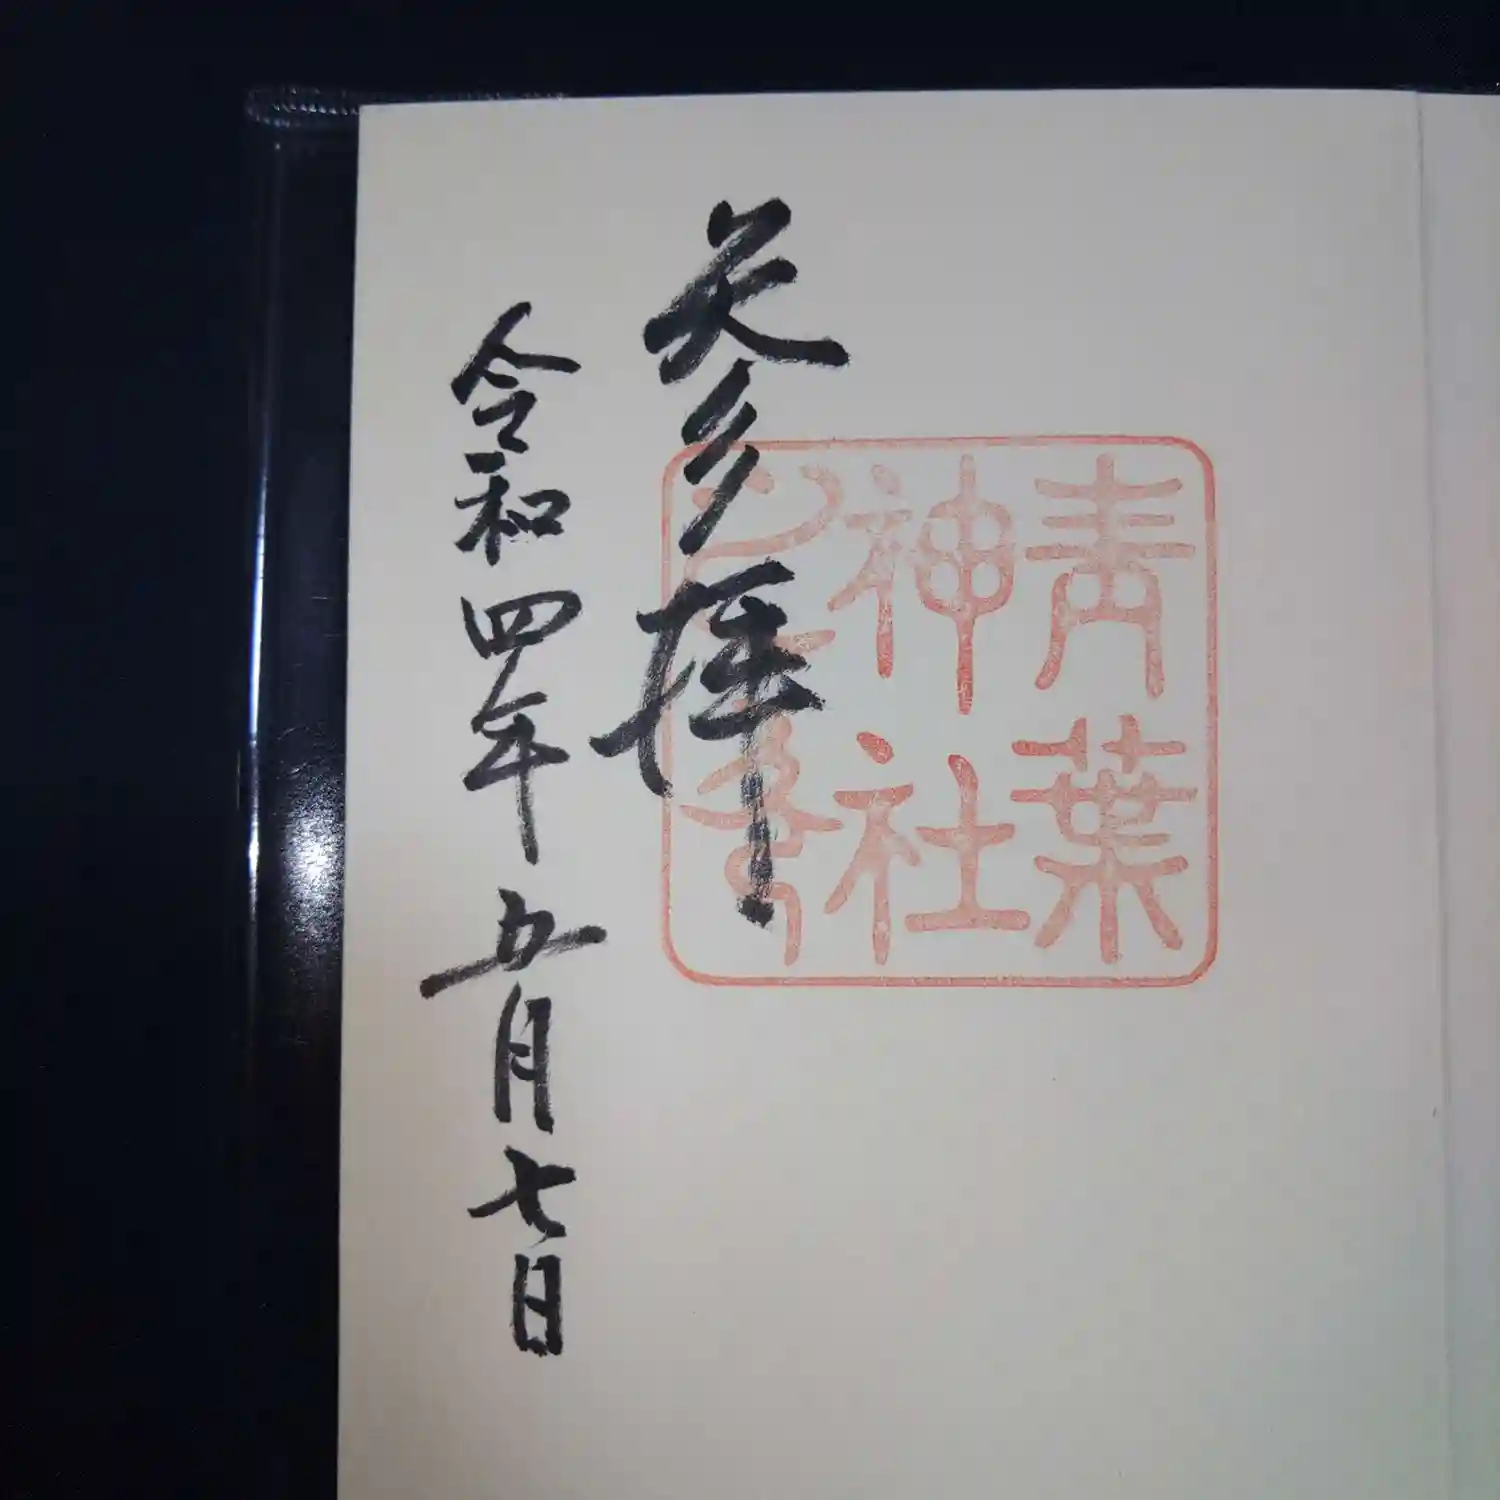 青葉
神社
参拝
令和四年五月七日